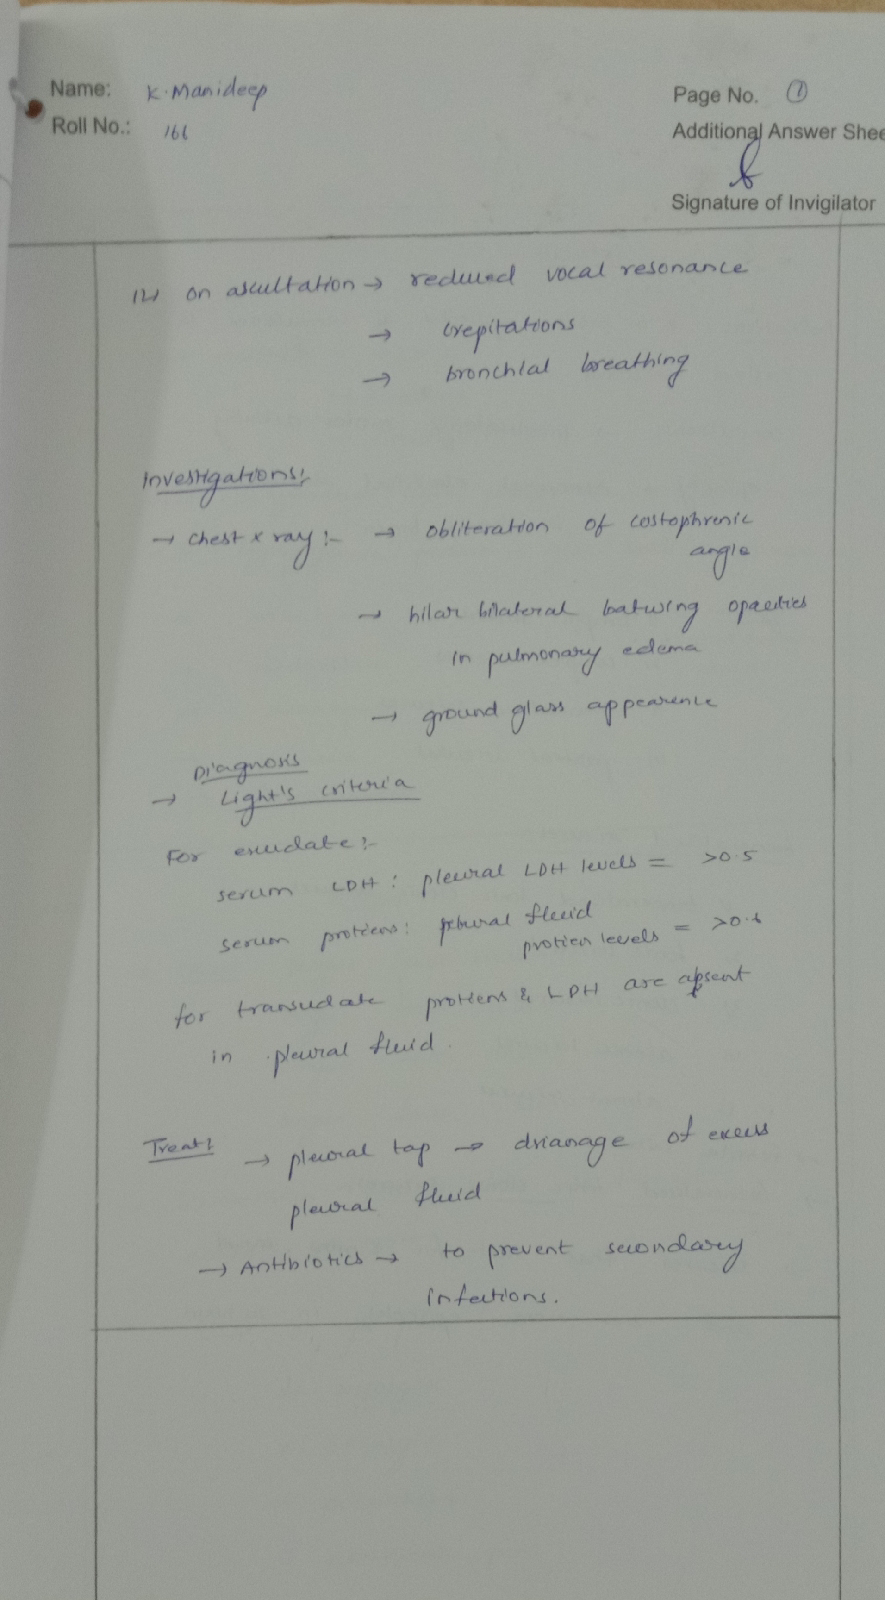 Name: K. Manideep
Page No. 1
Roll No.: 166
Additional Answer Shee
Signature of Invigilator
12) on ascultation → reduced vocal resonance
→ crepitations
→ bronchial breathing
Investigations:
→ chest x ray :- → obliteration of costophrenic
angle
→ hilar bilateral batwing opacities
in pulmonary edema
→ ground glass appearence
Diagnosis
→ Light's criteria
For exudate :-
serum LDH : pleural LDH levels = >0.5
serum protiens : pleural fluid
protien levels = >0.6
for transudate protiens & LDH are absent
in pleural fluid.
Treat:
→ pleural tap → drianage of excess
pleural fluid
→ Antibiotics → to prevent secondary
infections.